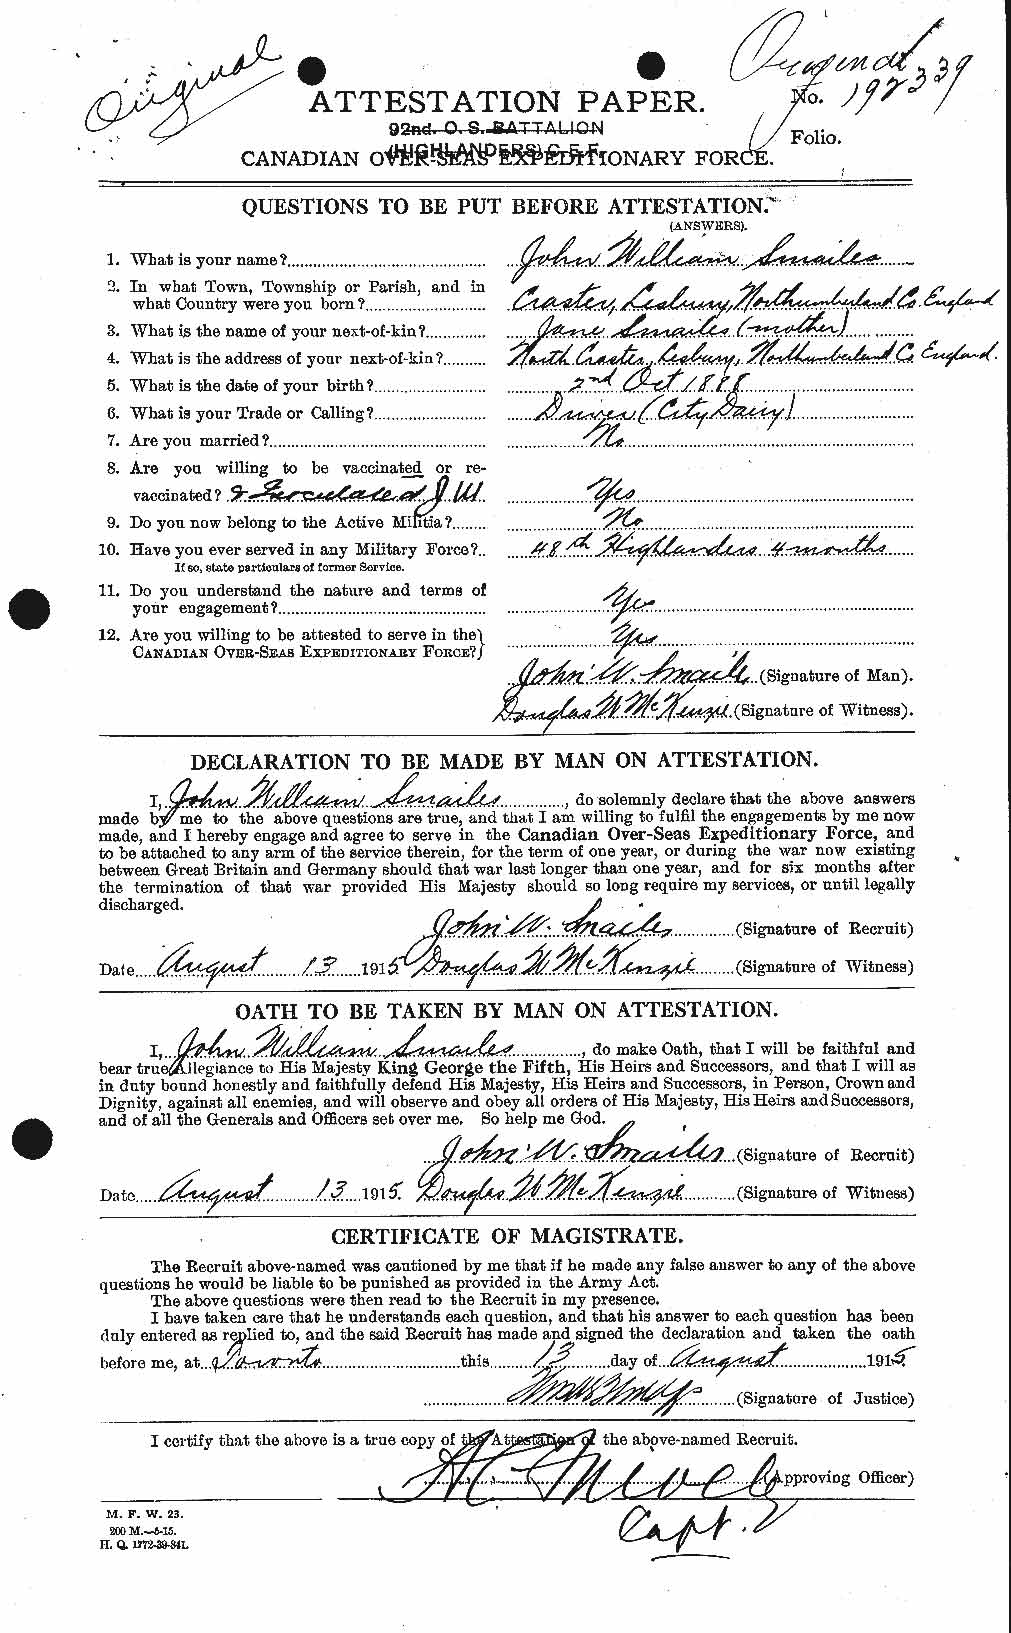 Original
Original
ATTESTATION PAPER.
No. 192339
92nd. O. S. BATTALION
Folio.
(HIGHLANDERS) C. E. F.
CANADIAN OVER-SEAS EXPEDITIONARY FORCE.
QUESTIONS TO BE PUT BEFORE ATTESTATION.
(ANSWERS).
1. What is your name? John William Smailes
2. In what Town, Township or Parish, and in
what Country were you born? Craster, Lesbury, Northumberland Co. England
3. What is the name of your next-of-kin? Jane Smailes (mother)
4. What is the address of your next-of-kin? North Craster, Lesbury, Northumberland Co England.
5. What is the date of your birth? 2nd Oct 1888
6. What is your Trade or Calling? Driver (City Dairy)
7. Are you married? No
8. Are you willing to be vaccinated or re-
vaccinated? & Inoculated J W Yes
9. Do you now belong to the Active Militia? No
10. Have you ever served in any Military Force? 48th Highlanders 4 months
If so, state particulars of former Service.
11. Do you understand the nature and terms of
your engagement? Yes
12. Are you willing to be attested to serve in the
CANADIAN OVER-SEAS EXPEDITIONARY FORCE? Yes
John W. Smailes (Signature of Man).
Douglas W McKenzie (Signature of Witness).
DECLARATION TO BE MADE BY MAN ON ATTESTATION.
I, John William Smailes, do solemnly declare that the above answers
made by me to the above questions are true, and that I am willing to fulfil the engagements by me now
made, and I hereby engage and agree to serve in the Canadian Over-Seas Expeditionary Force, and
to be attached to any arm of the service therein, for the term of one year, or during the war now existing
between Great Britain and Germany should that war last longer than one year, and for six months after
the termination of that war provided His Majesty should so long require my services, or until legally
discharged.
John W. Smailes (Signature of Recruit)
Date August 13 1915 Douglas W McKenzie (Signature of Witness)
OATH TO BE TAKEN BY MAN ON ATTESTATION.
I, John William Smailes, do make Oath, that I will be faithful and
bear true Allegiance to His Majesty King George the Fifth, His Heirs and Successors, and that I will as
in duty bound honestly and faithfully defend His Majesty, His Heirs and Successors, in Person, Crown and
Dignity, against all enemies, and will observe and obey all orders of His Majesty, His Heirs and Successors,
and of all the Generals and Officers set over me. So help me God.
John W. Smailes (Signature of Recruit)
Date August 13 1915. Douglas W McKenzie (Signature of Witness)
CERTIFICATE OF MAGISTRATE.
The Recruit above-named was cautioned by me that if he made any false answer to any of the above
questions he would be liable to be punished as provided in the Army Act.
The above questions were then read to the Recruit in my presence.
I have taken care that he understands each question, and that his answer to each question has been
duly entered as replied to, and the said Recruit has made and signed the declaration and taken the oath
before me, at Toronto this 13 day of August 1915
(Signature of Justice)
I certify that the above is a true copy of the Attestation of the above-named Recruit.
(Approving Officer)
Capt.
M. F. W. 23.
200 M.—5-15.
H. Q. 1772-39-841.